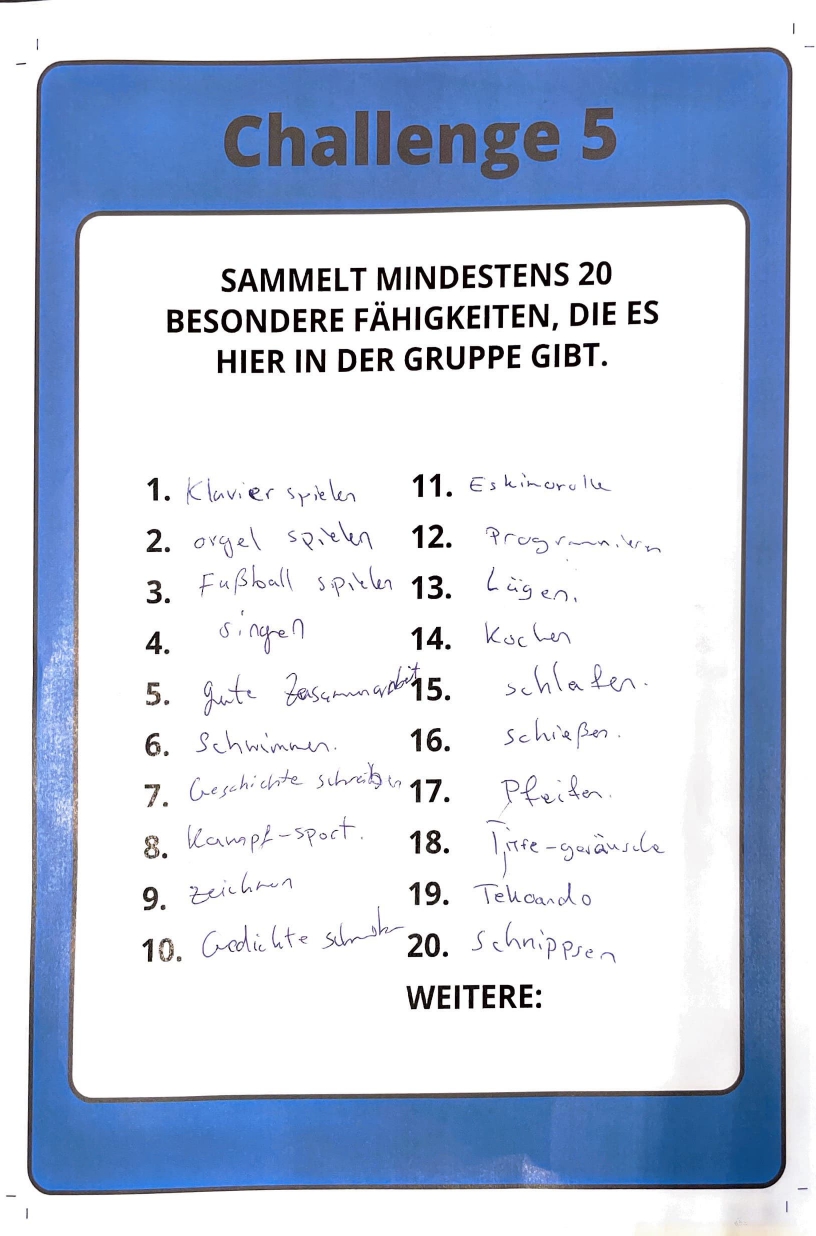 Challenge 5
SAMMELT MINDESTENS 20
BESONDERE FÄHIGKEITEN, DIE ES
HIER IN DER GRUPPE GIBT.
1. Klavier spielen
2. orgel spielen
3. Fußball spielen
4. singen
5. gute Zusammenarbeit
6. Schwimmen.
7. Geschichte schreiben
8. Kampf-sport.
9. zeichnen
10. Gedichte schreiben
11. Eskimorolle
12. Programmieren
13. Lügen.
14. Kochen
15. schlafen.
16. schießen.
17. Pfeifen.
18. Tiere-geräusche
19. Tekoando
20. Schnippsen
WEITERE: